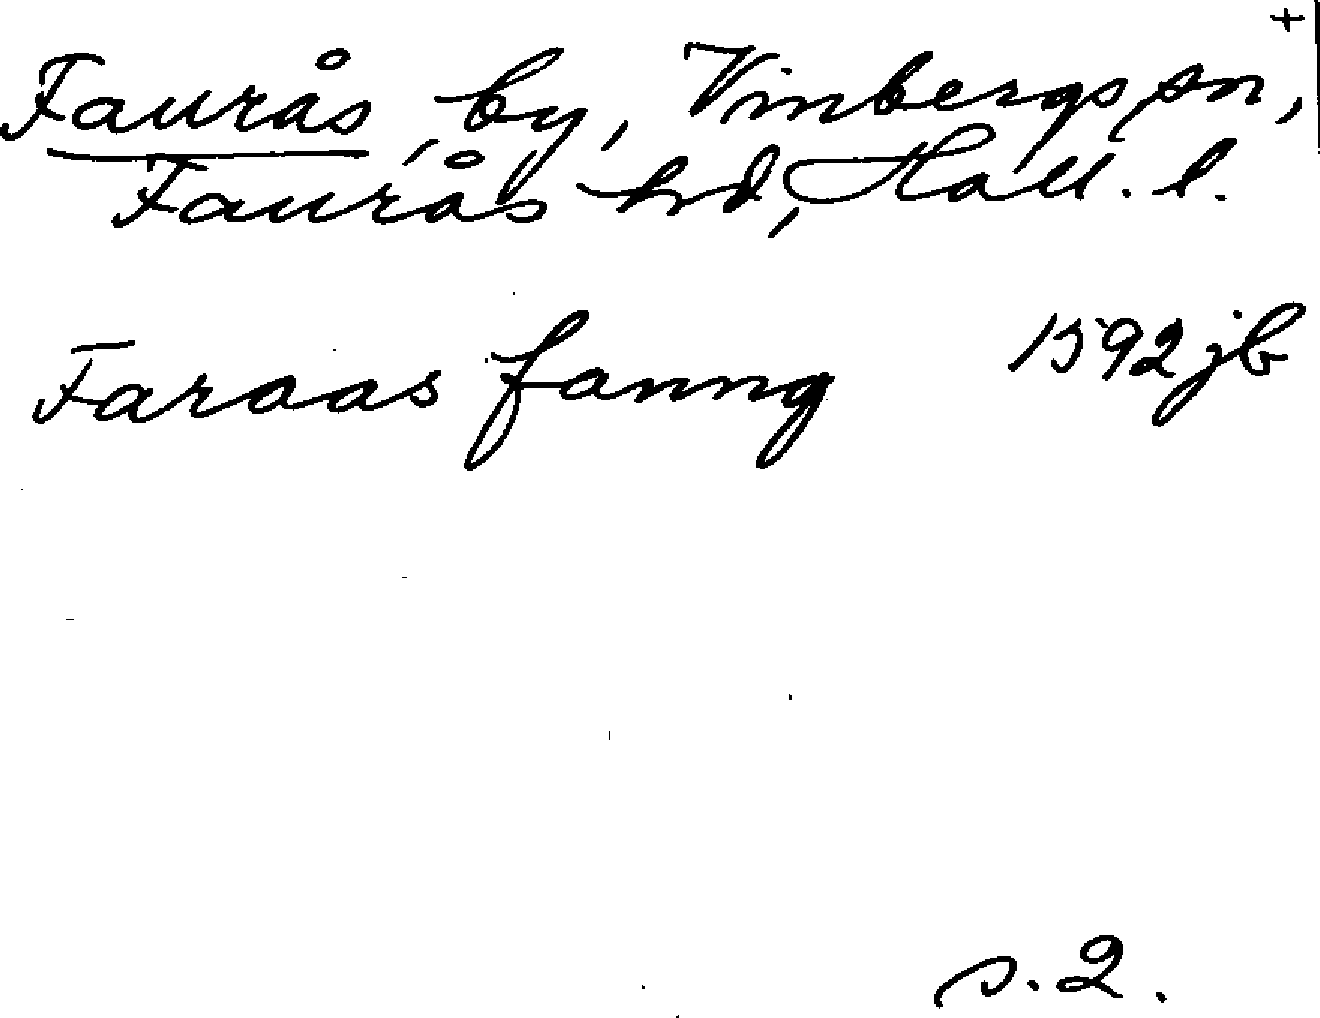 +
Faurås, by, Vinbergs sn,
Faurås hd, Hall. l.
Faraas fanng 1592 jb
s. 2.